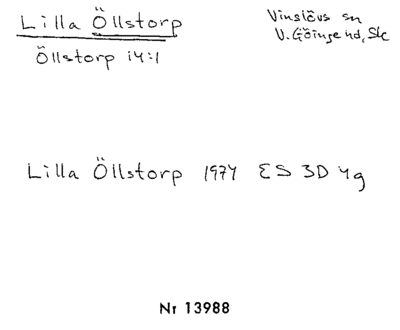 Lilla Öllstorp
Öllstorp 14:1
Vinslövs sn
V. Göinge hd, Sk
Lilla Öllstorp 1974 ES 3D 4g
Nr 13988